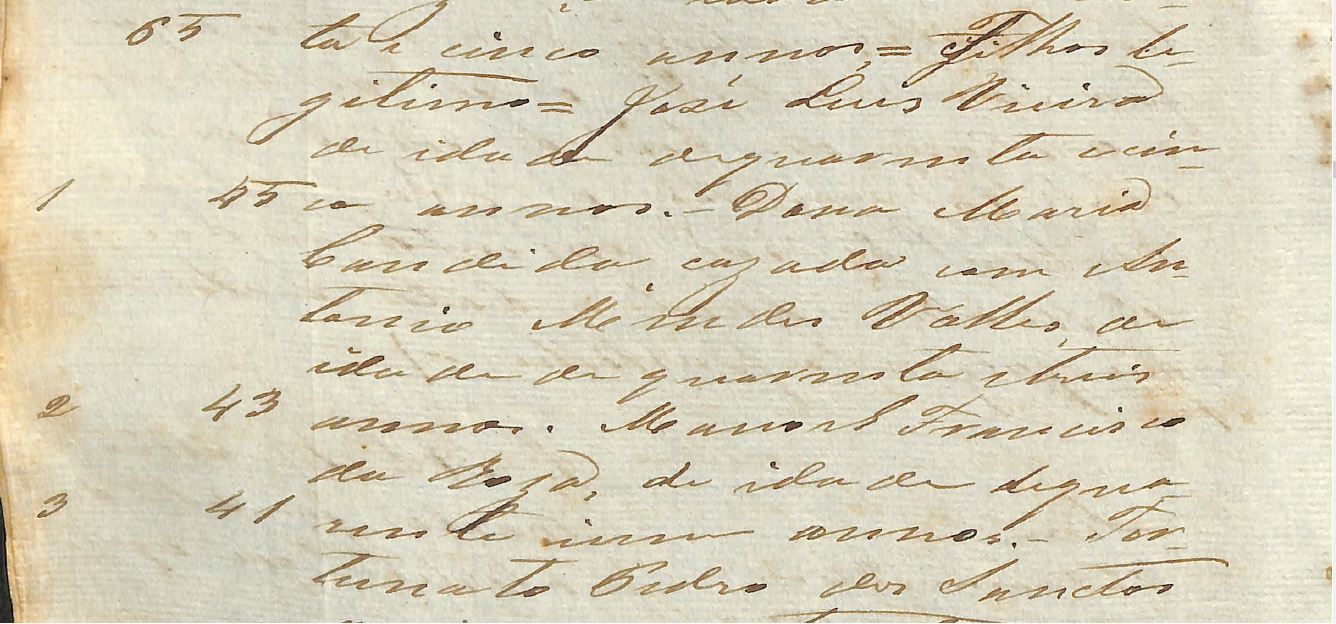 65 ta e cinco annos,= Filhos le-
gitimo= José Luis Vieira
de idade de quarenta e cin-
1 45 co annos.- Dona Maria
Candida cazada com An-
tonio Mendes Valles, de
idade de quarenta e treis
2 43 annos. Manoel Francisco
da Roza, de idade de qua-
3 41 renta e hum annos.- For-
tunato Pedro dos Santos